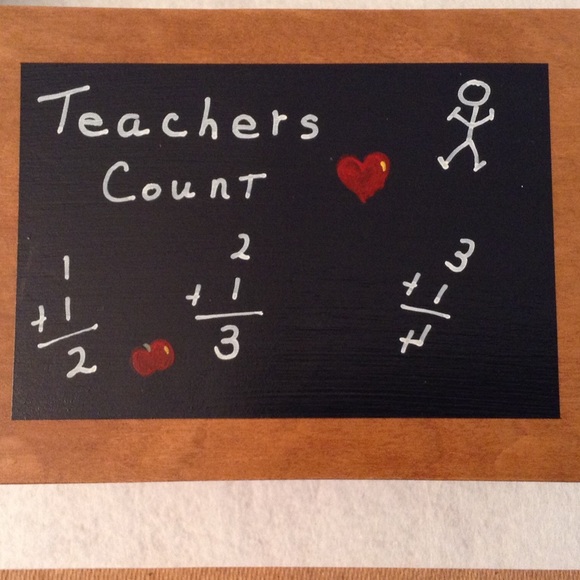 Teachers
Count
1
+ 1
2
2
+ 1
3
3
+ 1
4